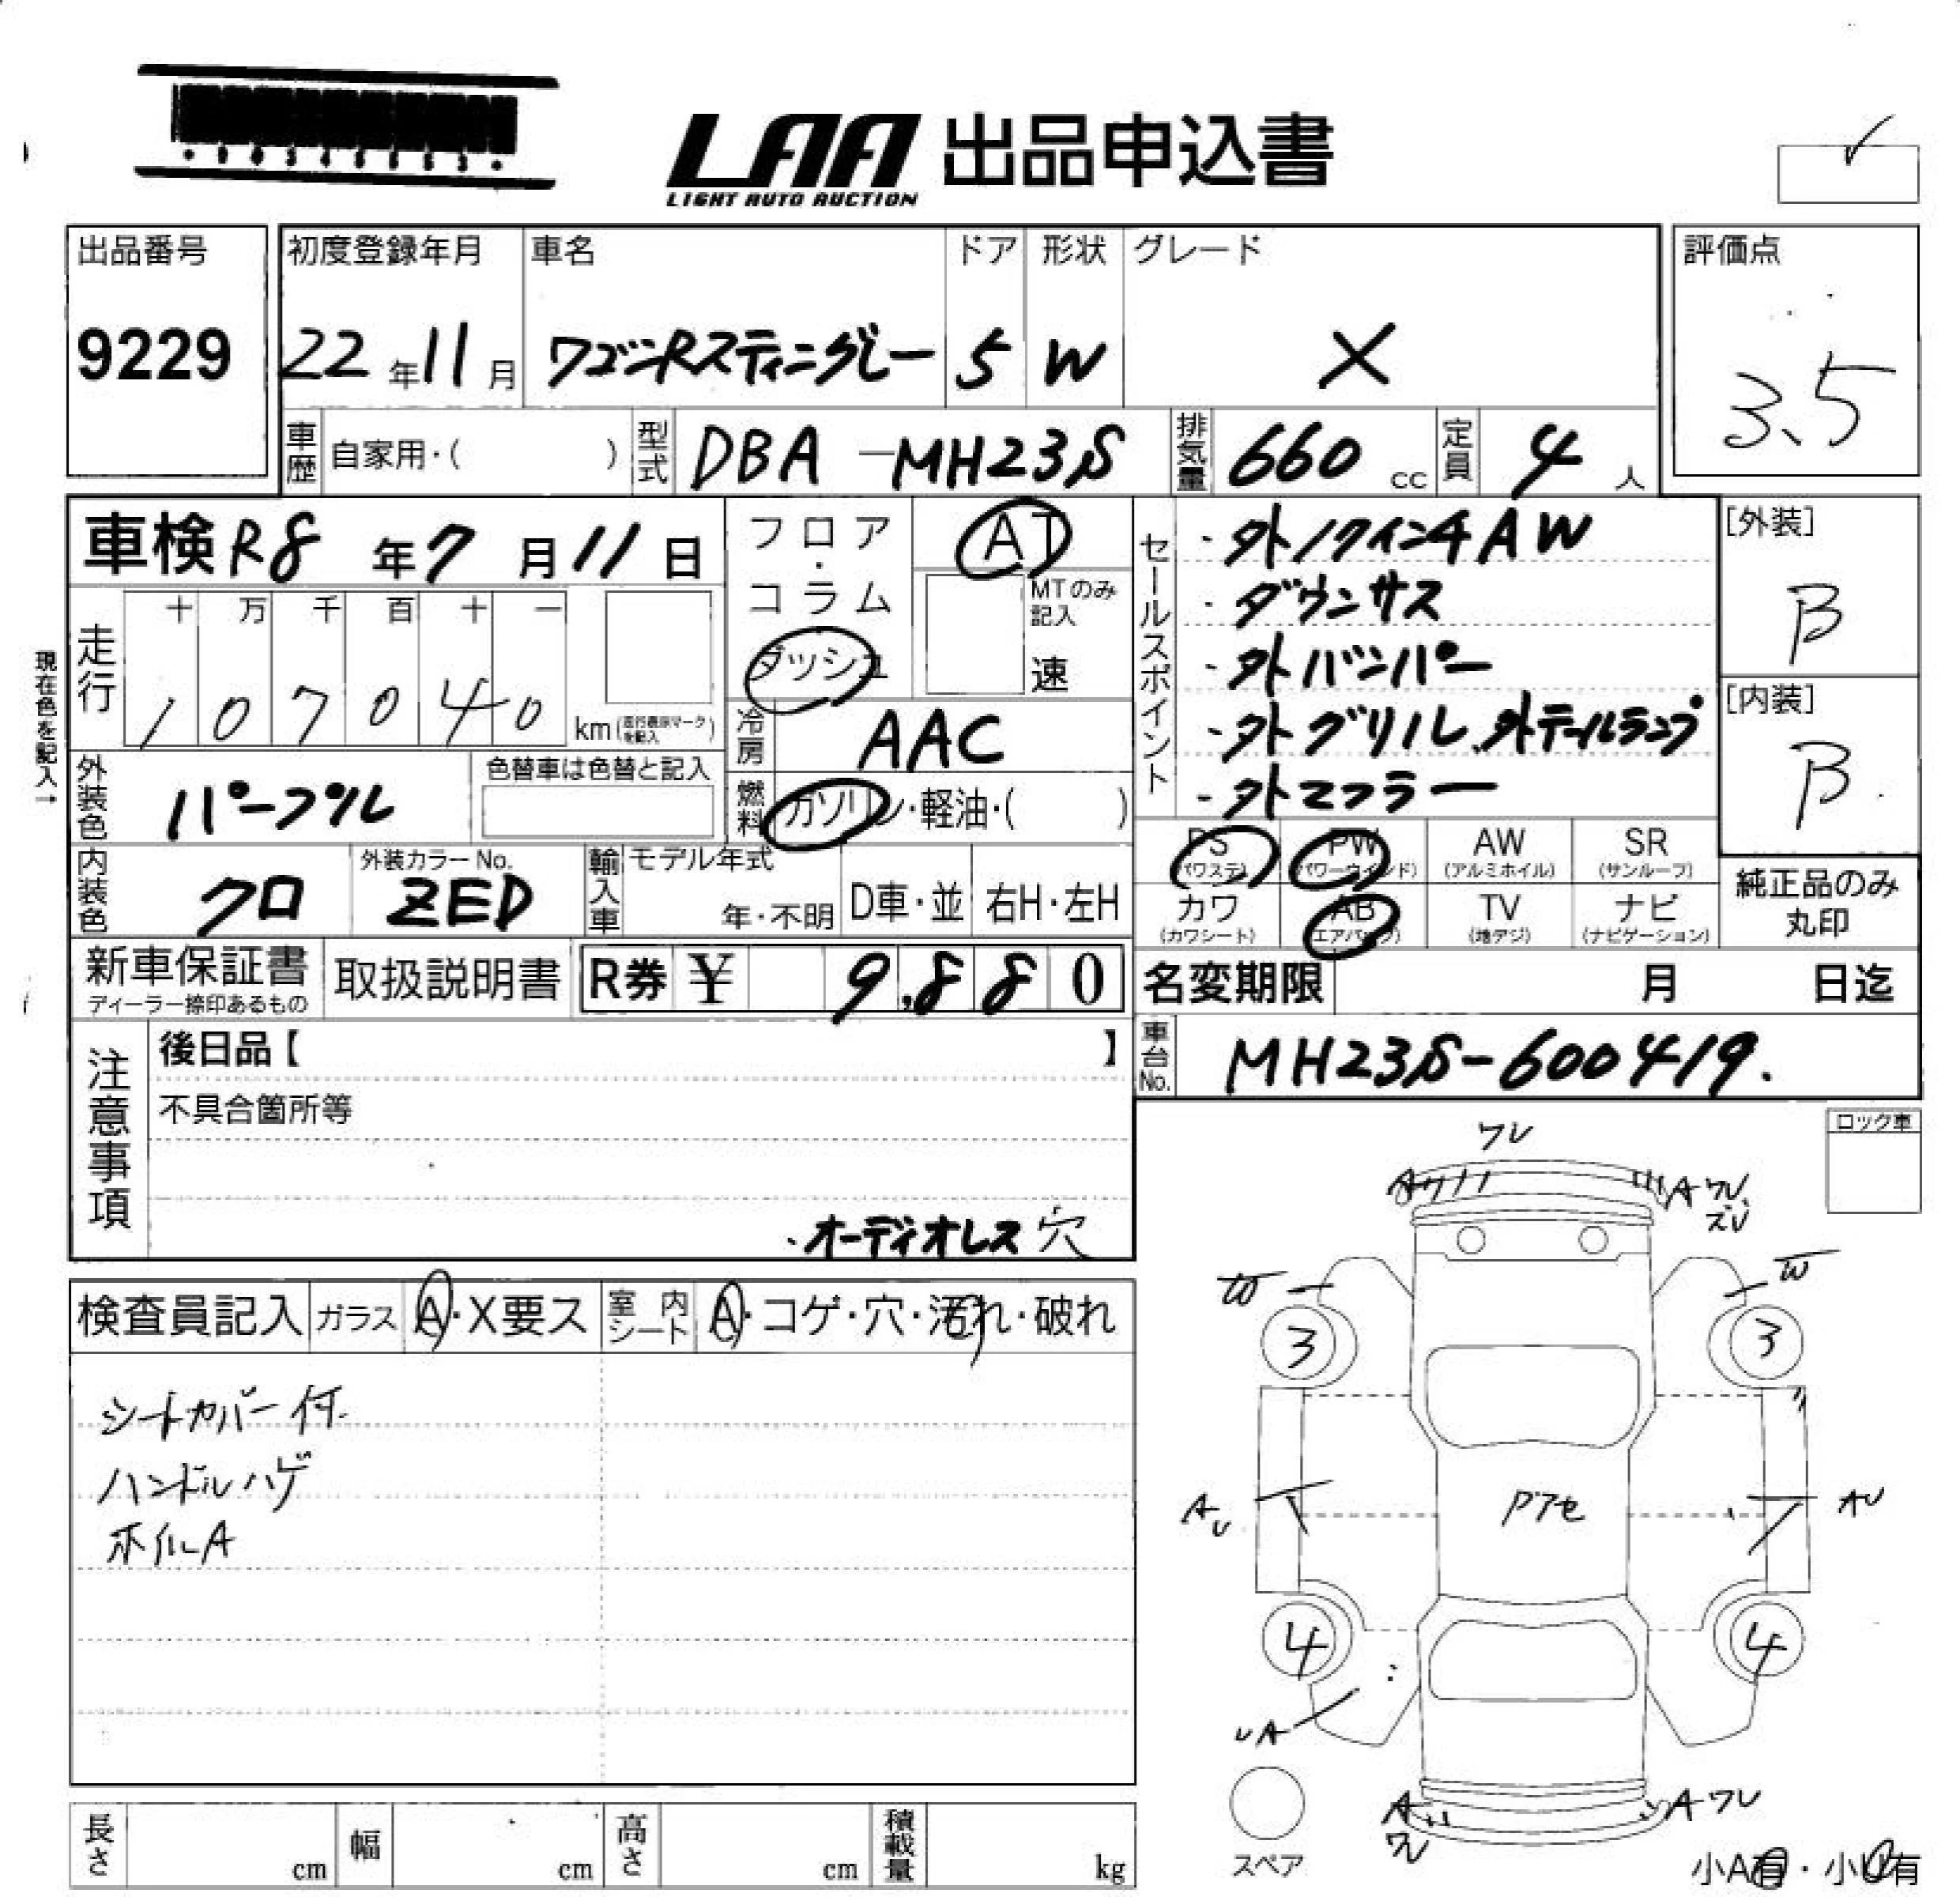 LAA 出品申込書
LIGHT AUTO AUCTION
出品番号 初度登録年月 車名 ドア 形状 グレード 評価点
9229 22年11月 ワゴンRスティングレー 5 W X 3.5
車歴 自家用・( ) 型式 DBA-MH23S 排気量 660 cc 定員 4 人
車検 R8年7月11日 フロア・コラム ダッシュ AT
MTのみ記入 速
セールスポイント
・外17インチAW
・ダウンサス
・外バンパー
・外グリル、外テールランプ
・外マフラー
[外装] B
[内装] B
現在色を記入→
走行 十 万 千 百 十 一
1 0 7 0 4 0 km(走行表示マークを記入)
冷房 AAC
外装色 パープル 色替車は色替と記入
燃料 ガソリン・軽油・( )
PS (パワステ) PW (パワーウインド) AW (アルミホイル) SR (サンルーフ)
カワ (カワシート) AB (エアバック) TV (地デジ) ナビ (ナビゲーション)
純正品のみ丸印
内装色 クロ 外装カラーNo. ZED 輸入車 モデル年式 年・不明 D車・並 右H・左H
新車保証書 ディーラー捺印あるもの 取扱説明書 R券 ¥ 9,880
名変期限 月 日迄
車台No. MH23S-600419.
注意事項
後日品【 】
不具合箇所等
・オーディオレス 穴
ロック車
検査員記入 ガラス A・X要ス 室内シート A・コゲ・穴・汚れ・破れ
シートカバー付
ハンドルハゲ
ホイルA
ワレ
A ワレ
ズレ
W W
3 3
AU AU
4 4
UA
A ワレ
A ワレ
スペア
長さ cm 幅 cm 高さ cm 積載量 kg
小A有・小U有